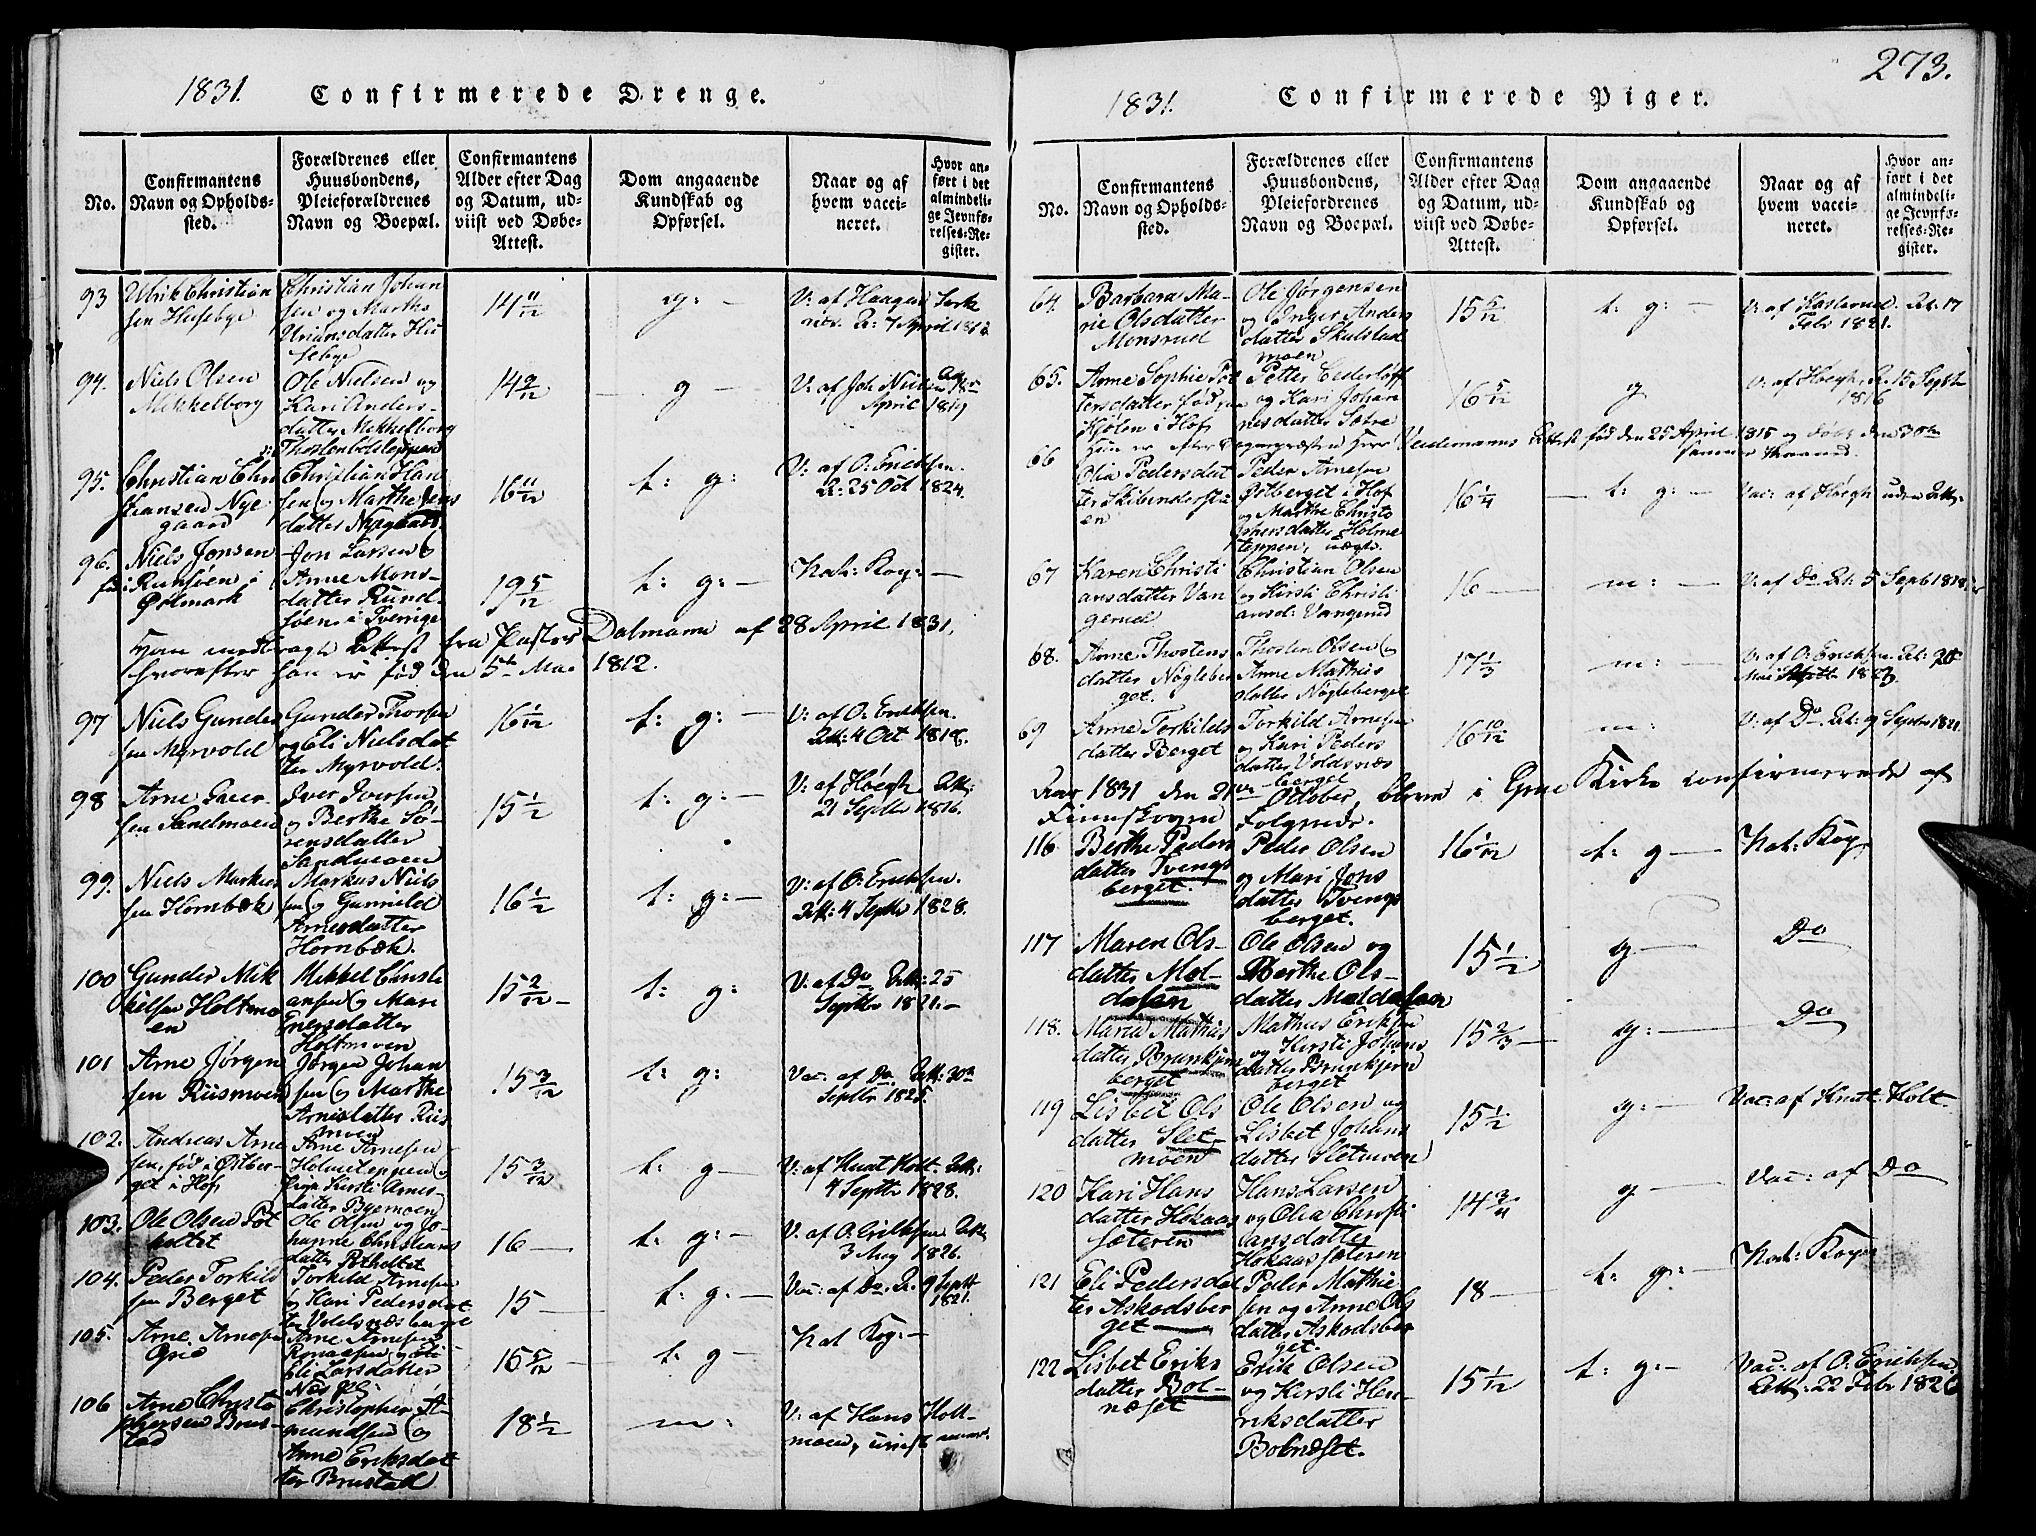 1831. Confirmerede Drenge.
No.
Confirmantens
Navn og Opholds-
sted.
Forældrenes eller
Huusbondens,
Pleieforældrenes
Navn og Boepæl.
Confirmantens
Alder efter Dag
og Datum, ud-
viist ved Døbe-
Attest.
Dom angaaende
Kundskab og
Opførsel.
Naar og af
hvem vacci-
neret.
Hvor an-
ført i det
almindeli-
ge Jevnfø-
relses-Re-
gister.
93
Ulrik Christian
sen Husebye
Christian Johan
sen og Marthe
datter Hu
sebye
14 11/12
g: —
94.
Niels Olsen
Mikkelborg
Ole Nielsen og
Kari Anders-
datter Mikkelborg
14 2/12
g —
April 1819
95.
Christian Chri
stiansen Nye
gaard
Christian Han
sen og Marthe Jens
datter Nygaard
16 11/12
t: g:
V: af O: Ericksen.
A: 25 Oct 1824.
96.
Niels Jonsen
Jon Larsen og
Anne Mons-
datter Rund-
søen i Sverrige
19 5/12
t: g: —
Nat: Kop: —
Attest fra Pastor Dalmann af 28 April 1831,
hvorefter han er fød den 5te Mai 1812.
97
Niels Gunder
sen Myrvold
Gunder Thorsen
og Eli Nielsdat
ter Myrvold.
16 1/12
t: g: —
V: af O: Ericksen.
Att: 4 Oct 1818.
98
Arne Iver-
sen Sandmoen
Iver Iversen
og Berthe Sø-
rensdatter
Sandmoen
15 1/2
t: g: —
V: af Høegh Att:
21 Septbr 1816.
99.
Niels Markus
sen Hornbæk
Markus Niels
sen og Gunnild
Arnesdatter
Hornbæk.
16 1/2
t: g: —
V: af O: Ericksen.
Att: 4 Septbr 1828.
100
Gunder Mik
kelsen Holtmo
en
Mikkel Christi
ansen og Mari
Enersdatter
Holtmoen
15 2/12 —
t: g:
V: af Do Att: 25
Septbr 1821. —
101
Arne Jørgen
sen Riismoen
Jørgen Johan
sen og Marthe
Arnisdatter Riis
moen
15 3/12
t: g:
Vac: af Do Att: 30
Septbr 1825.
102.
Andreas Arne
sen, fød i Østber-
get i Hof,
Arne Arnesen
Holmeteppen og
Pige Kirsti Arnes
datter Byermoen
15 3/12
t: g —
V: af Knut Holt Att:
4 Septbr 1828.
103.
Ole Olsen Pot
holtet
Ole Olsen og Jo-
hanne Christians
datter Potholtet
16 —
t: g: —
V: af O: Ericksen Att
3 Aug 1826.
104.
Peder Torkild
sen Berget
Torkild Arnesen
og Kari Pedersdat
ter Voldsnæsberget
15 —
t: g: —
Vac: af Do. A: 9 Septbr
1821.
105.
Arne Arnesen
Arne Arnesen
Eli Larsdatter
15 5/12
t: g —
Nat Kop: —
106
Arne Christo
phersen Bru-
stad
Christopher A-
mundsen og
Anne Eriksdat
ter Brustad
18 1/2
m:
V: af Hans Holt-
moen,
1831. Confirmerede Piger. 273.
No.
Confirmantens
Navn og Opholds-
sted.
Forældrenes eller
Huusbondens,
Pleiefordrenes
Navn og Boepæl.
Confirmantens
Alder efter Dag
og Datum, ud-
viist ved Døbe-
Attest.
Dom angaaende
Kundskab og
Opførsel.
Naar og af
hvem vacci-
neret.
Hvor an-
ført i det
almindeli-
ge Jevnfø-
relses-Re-
gister.
64.
Barbara Ma-
rie Olsdatter
Monsrud
Ole Jørgensen
og Inger Anders
datter Skulstad
moen
15 5/12
t: g: —
Febr 1821.
65.
Anne Sophie Pet
tersdatter
Kjølen i Hof
Petter Cederløff
og Kari Johan
nesdatter Sætre
16 5/12
g
V: af Høegh, A. 15 Septbr
1816
Attest fød den 25 April 1815 og døbt den 30te
66
Olia Pedersdat
ter
Peder Arnesen
Østberget i Hof
og Marthe Christo
phersdatter Holme
teppen,
16 1/4
— t: g: —
Vac: af Høegh uden Att:
67
Karen Christi
ansdatter Van
gerud
Christian Olsen
og Kirsti Christi
ansd: Vangerud
16 —
m: —
V: af Do. At: 5 Septb 1818.
68.
Anne Thostens
datter Nøgleber
get.
Thosten Olsen og
Anne Mathis
datter Nøgleberget
17 1/3
m: —
V: af O: Ericksen. At: 20
69
Anne Torkilds
datter Berget
Torkild Arnesen
og Kari Peders
datter Voldsnæs
berget
16 10/12
m: —
V: af Do. At: 9 Septbr 1821.
Aar 1831 den 21de October, bleve i Grue Kirke confirmerede af
Finnskogen Følgende.
116.
Berthe Peders
datter Tvengs
berget.
Peder Olsen
og Mari Jons
datter Tvengs
berget.
16 1/12
t: g —
Nat: Kop
117
Maren Ols-
datter Mol-
dosen
Ole Olsen og
Berthe Ols-
datter Moldosen
15 1/2
g —
Do
118.
Maria Mathis
datter Brunkjern
berget
Mathis Eriksen
og Kirsti Johans
datter Brunkjern
berget
15 2/3 —
g: —
Do
119
Lisbet Ols
datter Slet-
moen
Ole Olsen og
Lisbet Johans
datter Sletmoen
15 1/2
g: —
Vac: af Knut Holt.
120
Kari Hans
datter Hokaas
sæteren
Hans Larsen
og Olia Christi
ansdatter
Hokaassæteren
14 3/4
g —
Vac: af Do
121
Eli Pedersdat
ter Askodsber
get —
Peder Mathie
sen og Anne Ols
datter Askodsber
get.
18 —
t: g: —
Nat: Kop:
122
Lisbet Eriks
datter Bol-
næset
Erik Olsen
og Kirsti Hen-
riksdatter
Bolnæset.
15 1/12
t: g: —
Vac: af O: Ericksen
Att: 22 Febr 1826